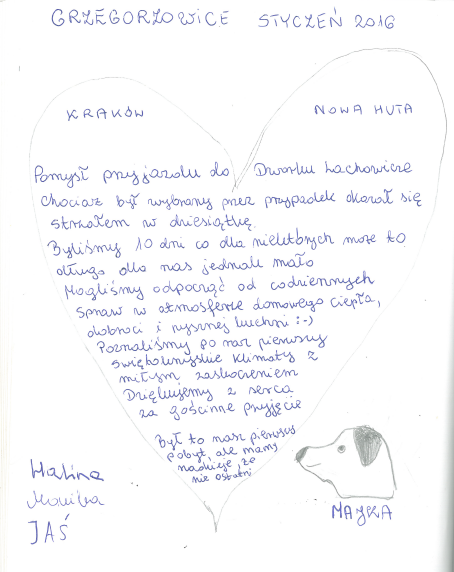 GRZEGORZOWICE STYCZEŃ 2016
KRAKÓW NOWA HUTA
Pomysł przyjazdu do Dworku Lachowicze
chociaż był wybrany przez przypadek okazał się
strzałem w dziesiątkę.
Byliśmy 10 dni co dla niektórych może to
długo dla nas jednak mało
Mogliśmy odpocząć od codziennych
spraw w atmosferze domowego ciepła,
dobroci i pysznej kuchni :-)
Poznaliśmy po raz pierwszy
świętokrzyskie klimaty z
miłym zaskoczeniem
Dziękujemy z serca
za gościnne przyjęcie
Był to nasz pierwszy
pobyt, ale mamy
nadzieję, że
nie ostatni
Halina
Monika
JAŚ
MAJKA